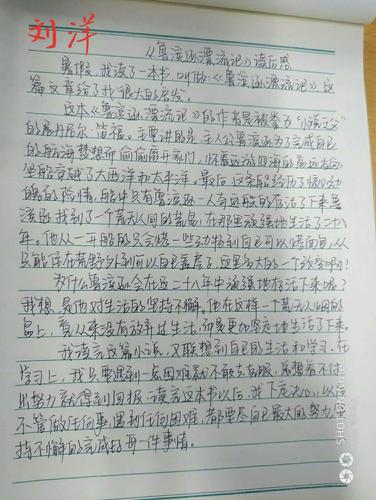 刘洋
《鲁滨逊漂流记》读后感
暑假,我读了一本书,叫做《鲁滨逊漂流记》,这
篇文章给了我很大的启发。
这本《鲁滨逊漂流记》的作者是被誉为“小说之父”
的展丹尼尔·笛福。主要讲的是:主人公鲁滨逊为了完成自己
的航海梦想而偷偷离开家门,怀着远游四海的高远志向,
坐船穿越了大西洋和太平洋。最后,这条船经历了惊心动
魄的险情,船中只有鲁滨逊一人奇迹般的存活了下来。鲁
滨逊找到了一个荒无人间的荒岛,在那里顽强地生活了二十八
年。他从一开始的只会烤一些动物到自己可以烤面包,从
只能住在荒野外到可以自己盖房子,这是多大的一个改变啊!
为什么鲁滨逊会在这二十八年中顽强地存活下来呢?
我想,是他对生活的坚持不懈。他在这样一个荒无人烟的
岛上,看从来没有放弃过生活,而是更加坚定地生活了下来。
我读完这篇小说,又联想到自己的生活和学习。在
学习上,我只要遇到一点困难就不敢去克服,总想着不付
出努力就得到回报。读完这本书以后,我下定决心:以后
不管做任何事,遇到任何困难,都要尽自己最大的努力,坚
持不懈的完成好每一件事情。
SHOT ON